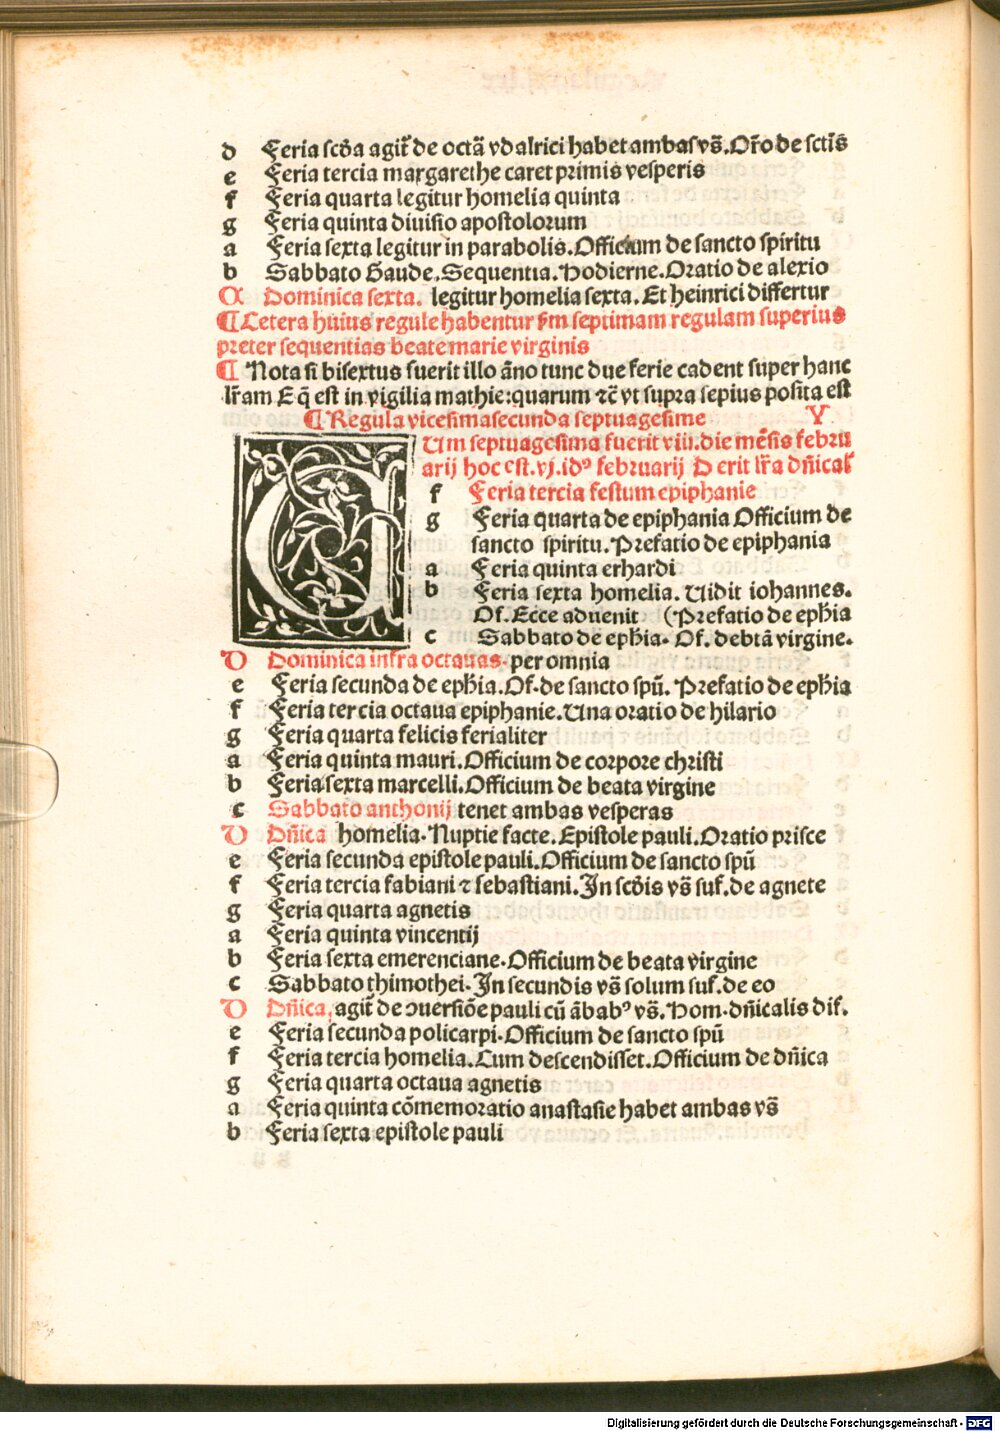 d Feria scđa agit̃ de octã vdalrici habet ambas vs̃. Or̃o de sctĩs
e Feria tercia margarethe caret primis vesperis
f Feria quarta legitur homelia quinta
g Feria quinta diuisio apostolorum
a Feria sexta legitur in parabolis. Officium de sancto spiritu
b Sabbato Gaude. Sequentia. Hodierne. Oratio de alexio
A Dominica sexta. legitur homelia sexta. Et heinrici differtur
¶ Cetera huius regule habentur s̃m septimam regulam superius
preter sequentias beate marie virginis
¶ Nota si bisextus fuerit illo ãno tunc due ferie cadent super hanc
lr̃am E q̃ est in vigilia mathie: quarum ⁊c̃ vt supra sepius posita est
¶ Regula vicesimasecunda septuagesime Y
CUm septuagesima fuerit viii. die mẽsis febru
arij hoc est. vj. idꝰ februarij D erit lr̃a dñicaľ
f Feria tercia festum epiphanie
g Feria quarta de epiphania Officium de
sancto spiritu. Prefatio de epiphania
a Feria quinta erhardi
b Feria sexta homelia. Uidit iohannes.
Of. Ecce aduenit (Prefatio de epħia
c Sabbato de epħia. Of. debtã virgine.
D Dominica infra octauas. per omnia
e Feria secunda de epħia. Of. de sancto spũ. Prefatio de epħia
f Feria tercia octaua epiphanie. Una oratio de hilario
g Feria quarta felicis ferialiter
a Feria quinta mauri. Officium de corpore christi
b Feria sexta marcelli. Officium de beata virgine
c Sabbato anthonij tenet ambas vesperas
D Dñica homelia. Nuptie facte. Epistole pauli. Oratio prisce
e Feria secunda epistole pauli. Officium de sancto spũ
f Feria tercia fabiani ⁊ sebastiani. In scđis vs̃ suf. de agnete
g Feria quarta agnetis
a Feria quinta vincentij
b Feria sexta emerenciane. Officium de beata virgine
c Sabbato thimothei. In secundis vs̃ solum suf. de eo
D Dñica, agit̃ de ↄuersiõe pauli cũ ãbabꝰ vs̃. Hom. dñicalis dif.
e Feria secunda policarpi. Officium de sancto spũ
f Feria tercia homelia. Cum descendisset. Officium de dñica
g Feria quarta octaua agnetis
a Feria quinta cõmemoratio anastasie habet ambas vs̃
b Feria sexta epistole pauli
Digitalisierung gefördert durch die Deutsche Forschungsgemeinschaft - DFG